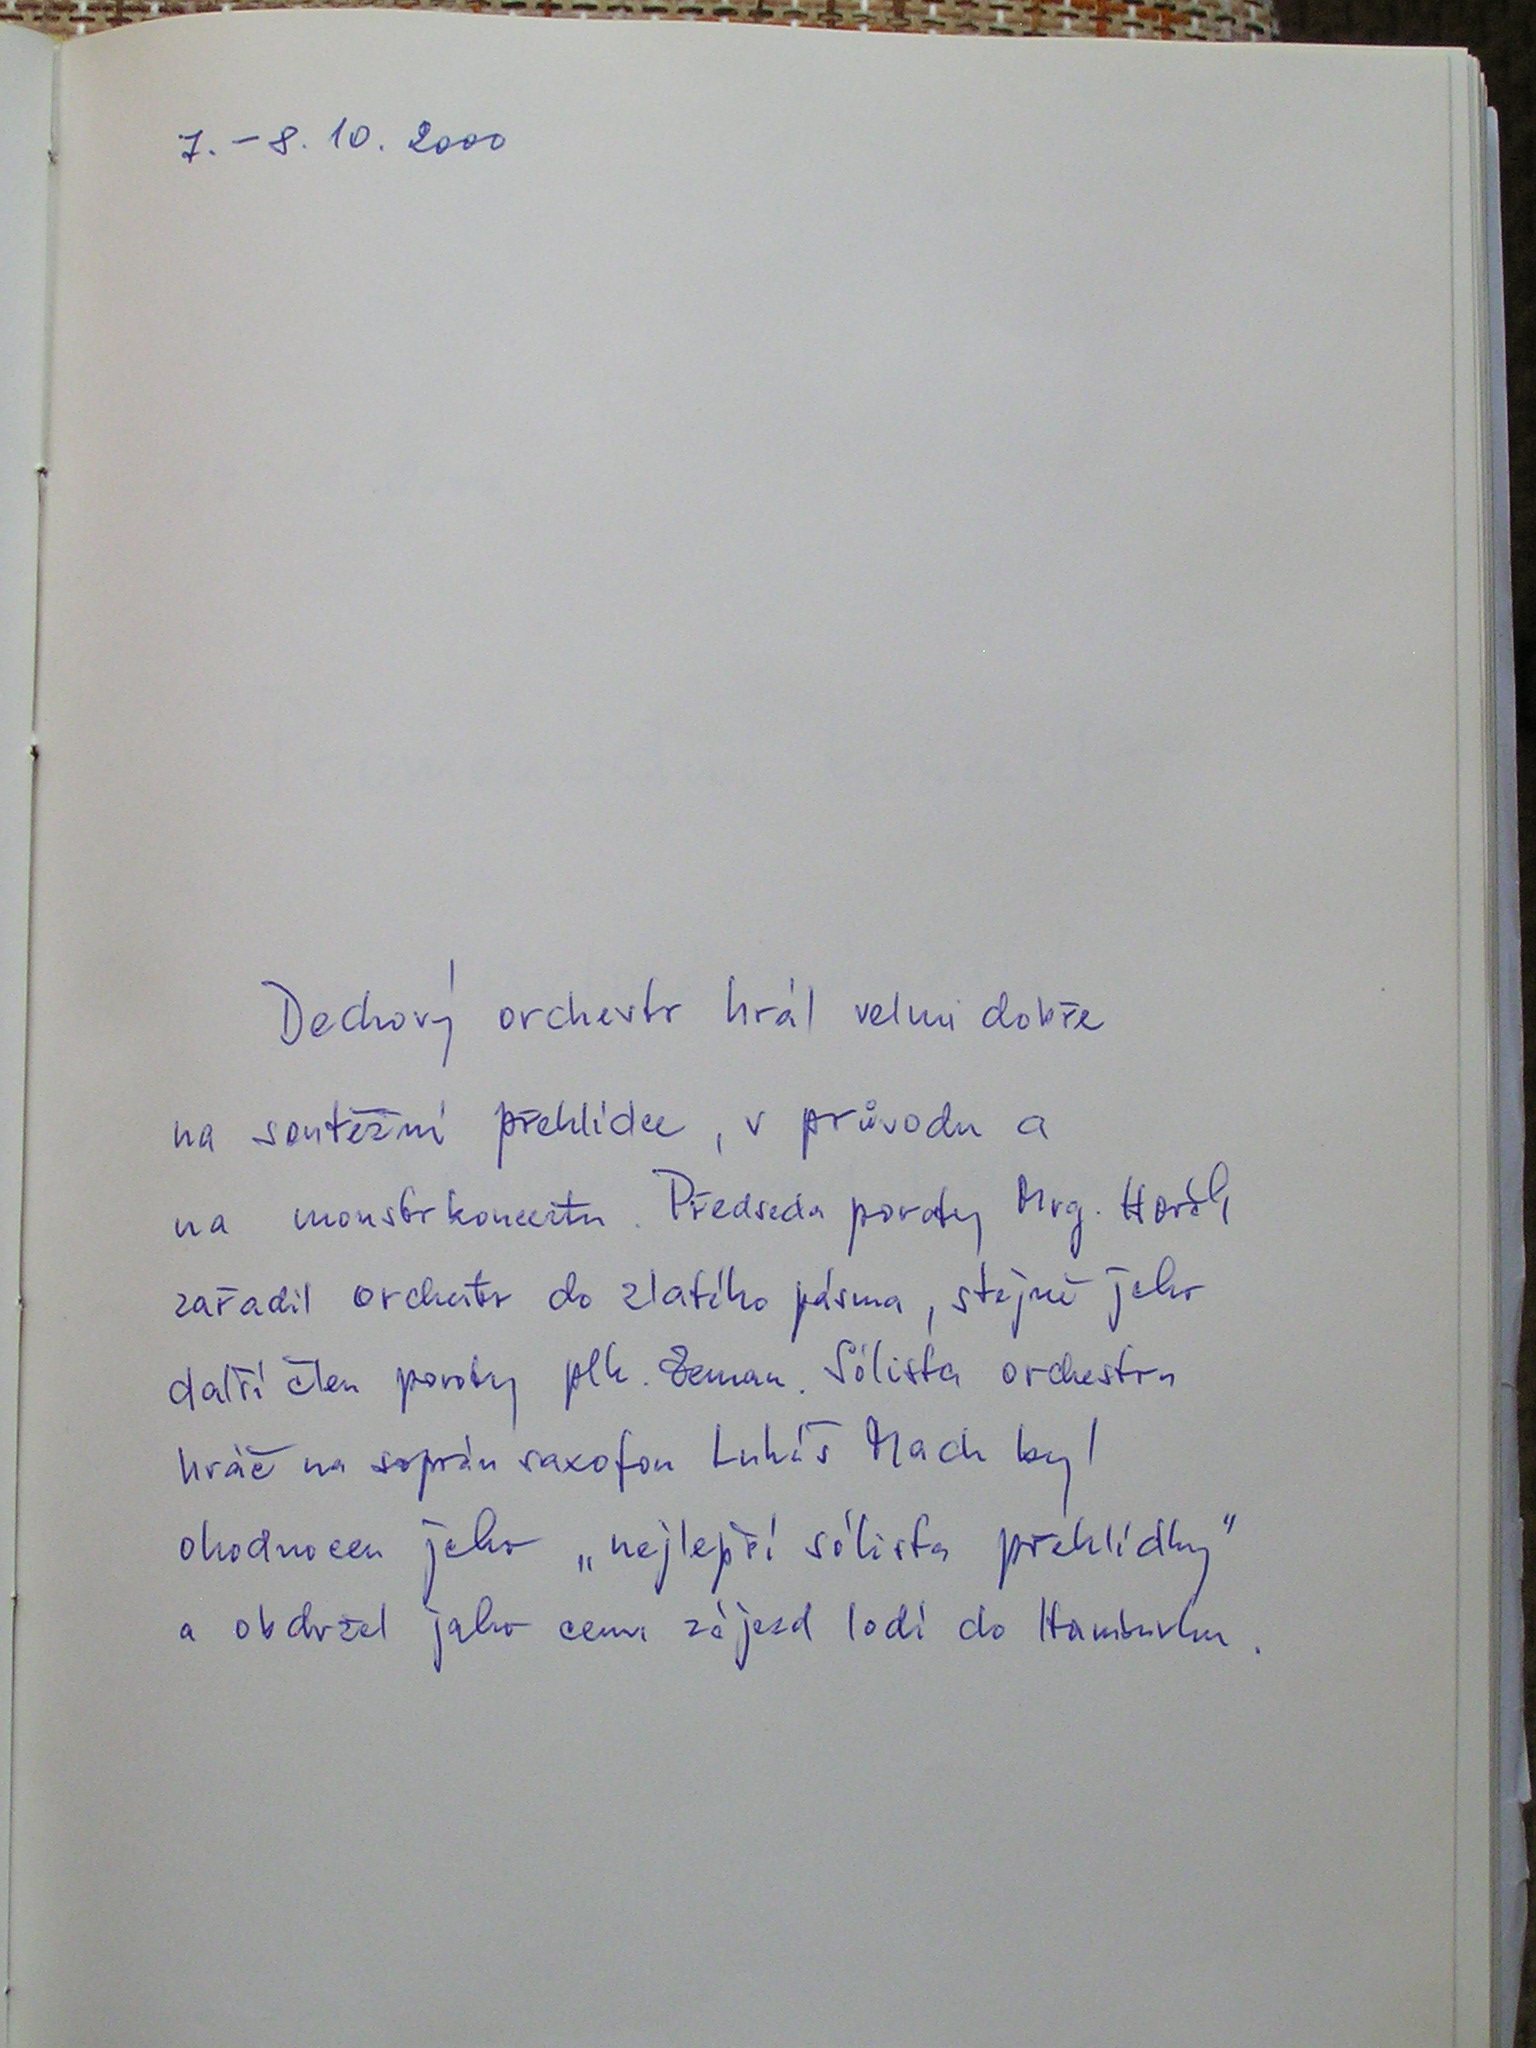 7. – 8. 10. 2000
Dechový orchestr hrál velmi dobře
na soutěžní přehlídce, v průvodu a
na monstrkoncertu. Předseda poroty Mrg. Horák
zařadil orchestr do zlatého pásma, stejně jako
další člen poroty plk. Zeman. Sólista orchestru
hráč na soprán saxofon Lukáš Mach byl
ohodnocen jako „nejlepší sólista přehlídky"
a obdržel jako cenu zájezd lodí do Hamburku.